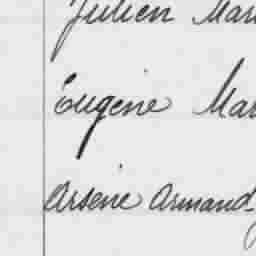 Julien Mar
Eugène Mar
Arsène Armand